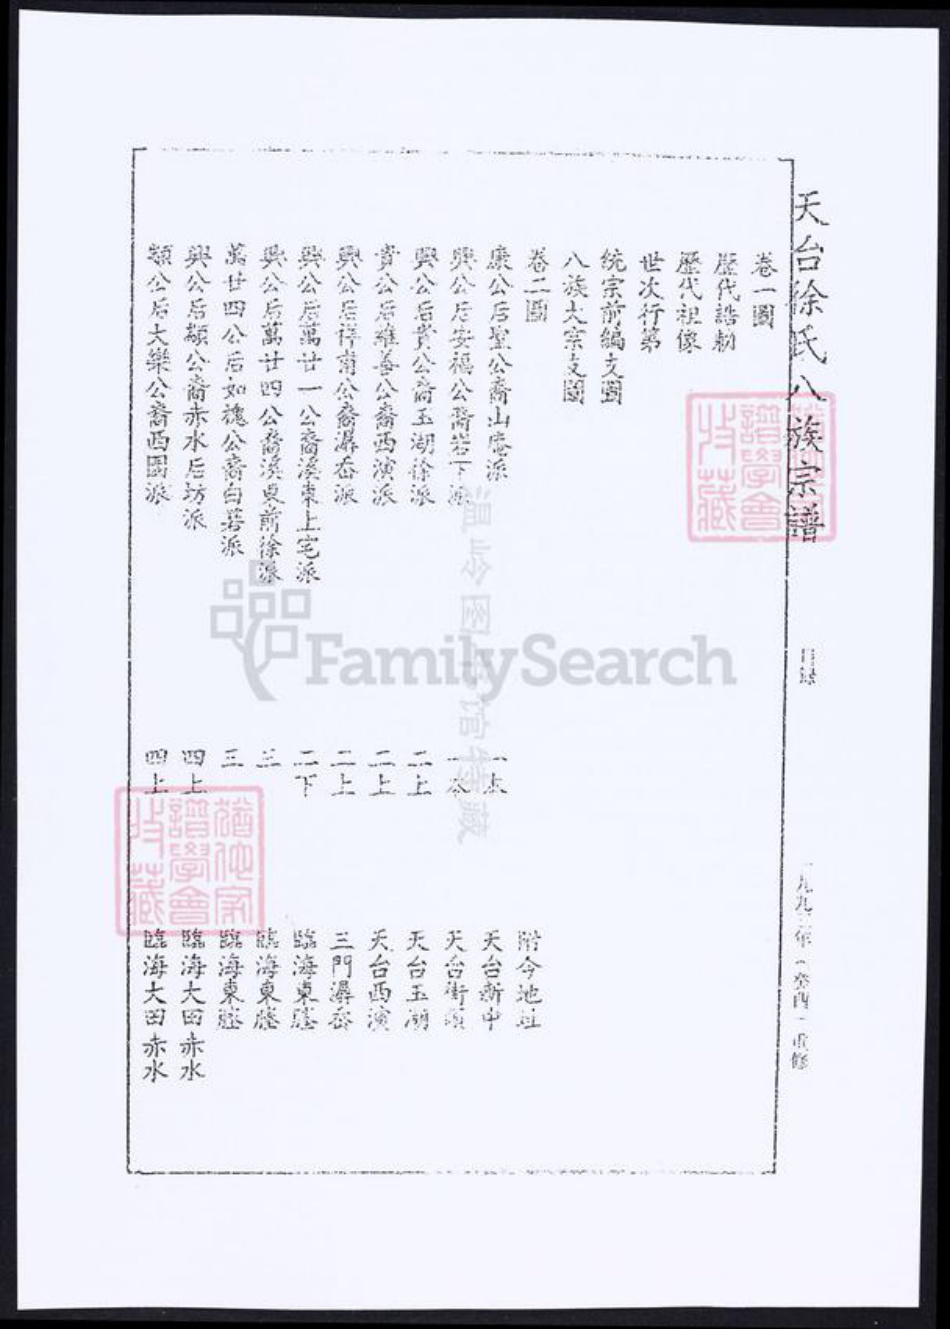 天台徐氏八族宗譜
目錄
一九九三年(癸酉)重修
卷一圖
歷代誥勅
歷代祖像
世次行第
統宗前編支圖
八族大宗支圖
卷二圖
附今地址
康公后聖公裔山庵派 一本 天台新中
興公后安福公裔岩下派 一本 天台街頭
興公后貴公裔玉湖徐派 二上 天台玉湖
貴公后維善公裔西演派 二上 天台西演
興公后得甫公裔潺岙派 二上 三門潺岙
興公后萬廿一公裔溪東上宅派 二下 臨海東塍
興公后萬廿四公裔溪東前徐派 三 臨海東塍
萬廿四公后如槐公裔白岩派 三 臨海東塍
興公后顯公裔赤水后坊派 四上 臨海大田赤水
顯公后大樂公裔西園派 四上 臨海大田赤水
溫岭图书馆特藏
FamilySearch
譜學會
收藏
譜學會
收藏